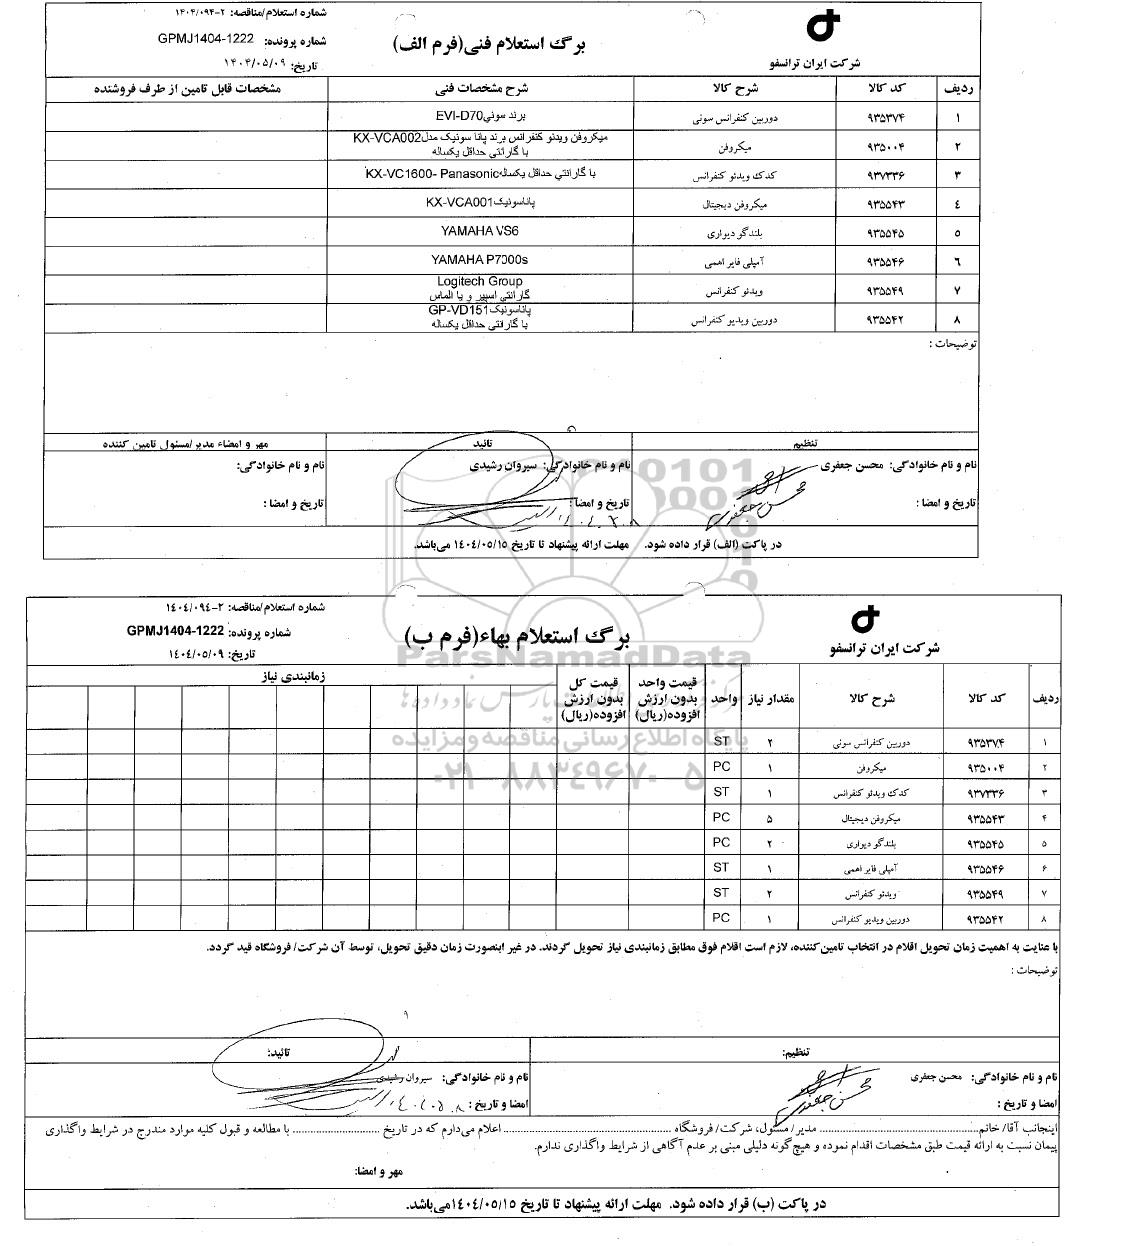 شماره استعلام/مناقصه: ۲-۱۴۰۴/۰۹۴
برگ استعلام فنی(فرم الف)
شماره پرونده: GPMJ1404-1222
شرکت ایران ترانسفو
تاریخ: ۱۴۰۴/۰۵/۰۹
ردیف کد کالا شرح کالا شرح مشخصات فنی مشخصات قابل تامین از طرف فروشنده
۱ ۹۳۵۳۷۴ دوربین کنفرانس سونی برند سونیEVI-D70
۲ ۹۳۵۰۰۴ میکروفن میکروفن ویدئو کنفرانس برند پانا سونیک مدلKX-VCA002
با گارانتی حداقل یکساله
۳ ۹۳۷۳۳۶ کدک ویدئو کنفرانس با گارانتی حداقل یکسالهKX-VC1600- Panasonic
۴ ۹۳۵۵۴۳ میکروفن دیجیتال پاناسونیکKX-VCA001
۵ ۹۳۵۵۴۵ بلندگو دیواری YAMAHA VS6
۶ ۹۳۵۵۴۶ آمپلی فایر اهمی YAMAHA P7000s
۷ ۹۳۵۵۴۹ ویدئو کنفرانس Logitech Group
گارانتی آسپیر و یا الماس
۸ ۹۳۵۵۴۲ دوربین ویدیو کنفرانس پاناسونیکGP-VD151
با گارانتی حداقل یکساله
توضیحات :
تنظیم تائید مهر و امضاء مدیر/مسئول تامین کننده
نام و نام خانوادگی: محسن جعفری نام و نام خانوادگی: سیروان رشیدی نام و نام خانوادگی:
تاریخ و امضا : تاریخ و امضا : تاریخ و امضا :
محسن جعفری
در پاکت (الف) قرار داده شود. مهلت ارائه پیشنهاد تا تاریخ ۱۴۰۴/۰۵/۱۵ می‌باشد.
شماره استعلام/مناقصه: ۲-۱۴۰۴/۰۹۴
برگ استعلام بهاء(فرم ب)
شماره پرونده: GPMJ1404-1222
شرکت ایران ترانسفو
تاریخ: ۱۴۰۴/۰۵/۰۹
ParsNamadData
پایگاه اطلاع رسانی مناقصه و مزایده
۰۲۱-۸۸۳۴۹۶۷۰-۵
ردیف کد کالا شرح کالا مقدار نیاز واحد قیمت واحد بدون ارزش افزوده(ریال) قیمت کل بدون ارزش افزوده(ریال) زمانبندی نیاز
۱ ۹۳۵۳۷۴ دوربین کنفرانس سونی ۲ ST
۲ ۹۳۵۰۰۴ میکروفن ۱ PC
۳ ۹۳۷۳۳۶ کدک ویدئو کنفرانس ۱ ST
۴ ۹۳۵۵۴۳ میکروفن دیجیتال ۵ PC
۵ ۹۳۵۵۴۵ بلندگو دیواری ۲ PC
۶ ۹۳۵۵۴۶ آمپلی فایر اهمی ۱ ST
۷ ۹۳۵۵۴۹ ویدئو کنفرانس ۲ ST
۸ ۹۳۵۵۴۲ دوربین ویدیو کنفرانس ۱ PC
با عنایت به اهمیت زمان تحویل اقلام در انتخاب تامین‌کننده، لازم است اقلام فوق مطابق زمانبندی نیاز تحویل گردند. در غیر اینصورت زمان دقیق تحویل، توسط آن شرکت/ فروشگاه قید گردد.
توضیحات :
تنظیم: تائید:
نام و نام خانوادگی: محسن جعفری نام و نام خانوادگی: سیروان رشیدی
امضا و تاریخ : امضا و تاریخ :
محسن جعفری
اینجانب آقا/ خانم........ مدیر/ مسئول، شرکت/ فروشگاه ........ اعلام می‌دارم که در تاریخ ........ با مطالعه و قبول کلیه موارد مندرج در شرایط واگذاری
پیمان نسبت به ارائه قیمت طبق مشخصات اقدام نموده و هیچ‌گونه دلیلی مبنی بر عدم آگاهی از شرایط واگذاری ندارم.
مهر و امضا:
در پاکت (ب) قرار داده شود. مهلت ارائه پیشنهاد تا تاریخ ۱۴۰۴/۰۵/۱۵می‌باشد.